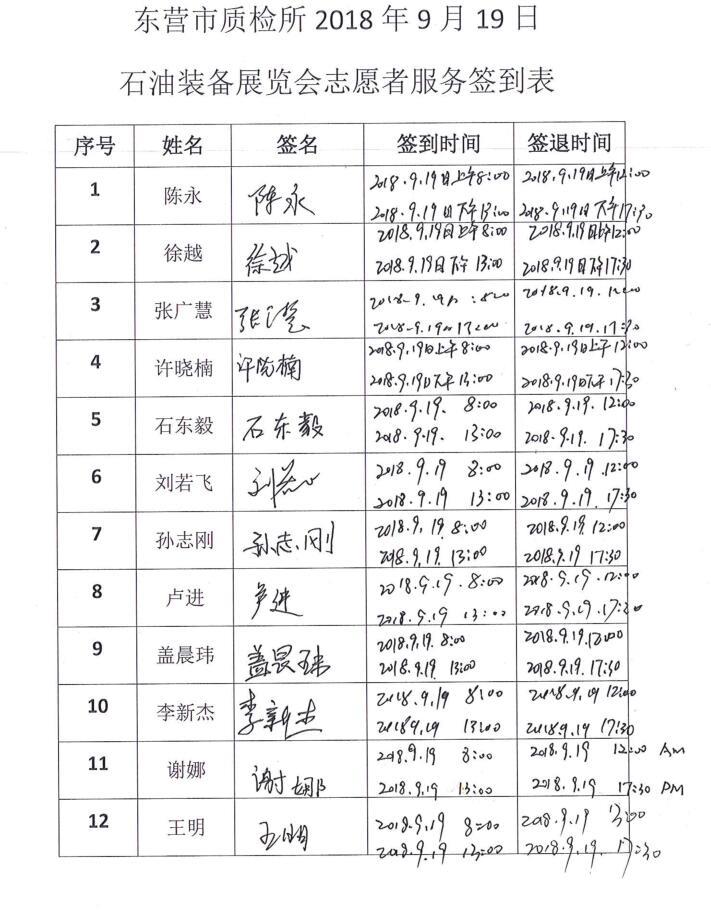 东营市质检所 2018 年 9 月 19 日
石油装备展览会志愿者服务签到表
序号 姓名 签名 签到时间 签退时间
1 陈永 陈永 2018.9.19日上午8:00 2018.9.19日上午12:00
2018.9.19日下午13:00 2018.9.19日下午17:30
2 徐越 徐越 2018.9.19日上午8:00 2018.9.19日上午12:00
2018.9.19日下午13:00 2018.9.19日下午17:30
3 张广慧 2018.9.19 8:00 2018.9.19.12:00
2018.9.19 2018.9.19.17:30
4 许晓楠 许晓楠 2018.9.19日上午8:00 2018.9.19日上午12:00
2018.9.19日下午13:00 2018.9.19日下午17:30
5 石东毅 石东毅 2018.9.19. 8:00 2018.9.19. 12:00
2018.9.19. 13:00 2018.9.19. 17:30
6 刘若飞 2018.9.19 8:00 2018.9.19.12:00
2018.9.19 13:00 2018.9.19.17:30
7 孙志刚 孙志刚 2018.9.19 8:00 2018.9.19 12:00
2018.9.19. 13:00 2018.9.19 17:30
8 卢进 卢进 2018.9.19.8:00 2018.9.19.12:00
2018.9.19 13:00 2018.9.19.17:30
9 盖晨玮 盖晨玮 2018.9.19. 8:00 2018.9.19.12:00
2018.9.19 13:00 2018.9.19.17:30
10 李新杰 李新杰 2018.9.19 8:00 2018.9.19 12:00
2018.9.19 13:00 2018.9.19 17:30
11 谢娜 谢娜 2018.9.19 8:00 2018.9.19 12:00 AM
2018.9.19 13:00 2018.9.19 17:30 PM
12 王明 王明 2018.9.19 8:00 2018.9.19 13:00
2018.9.19 13:00 2018.9.19.17:30